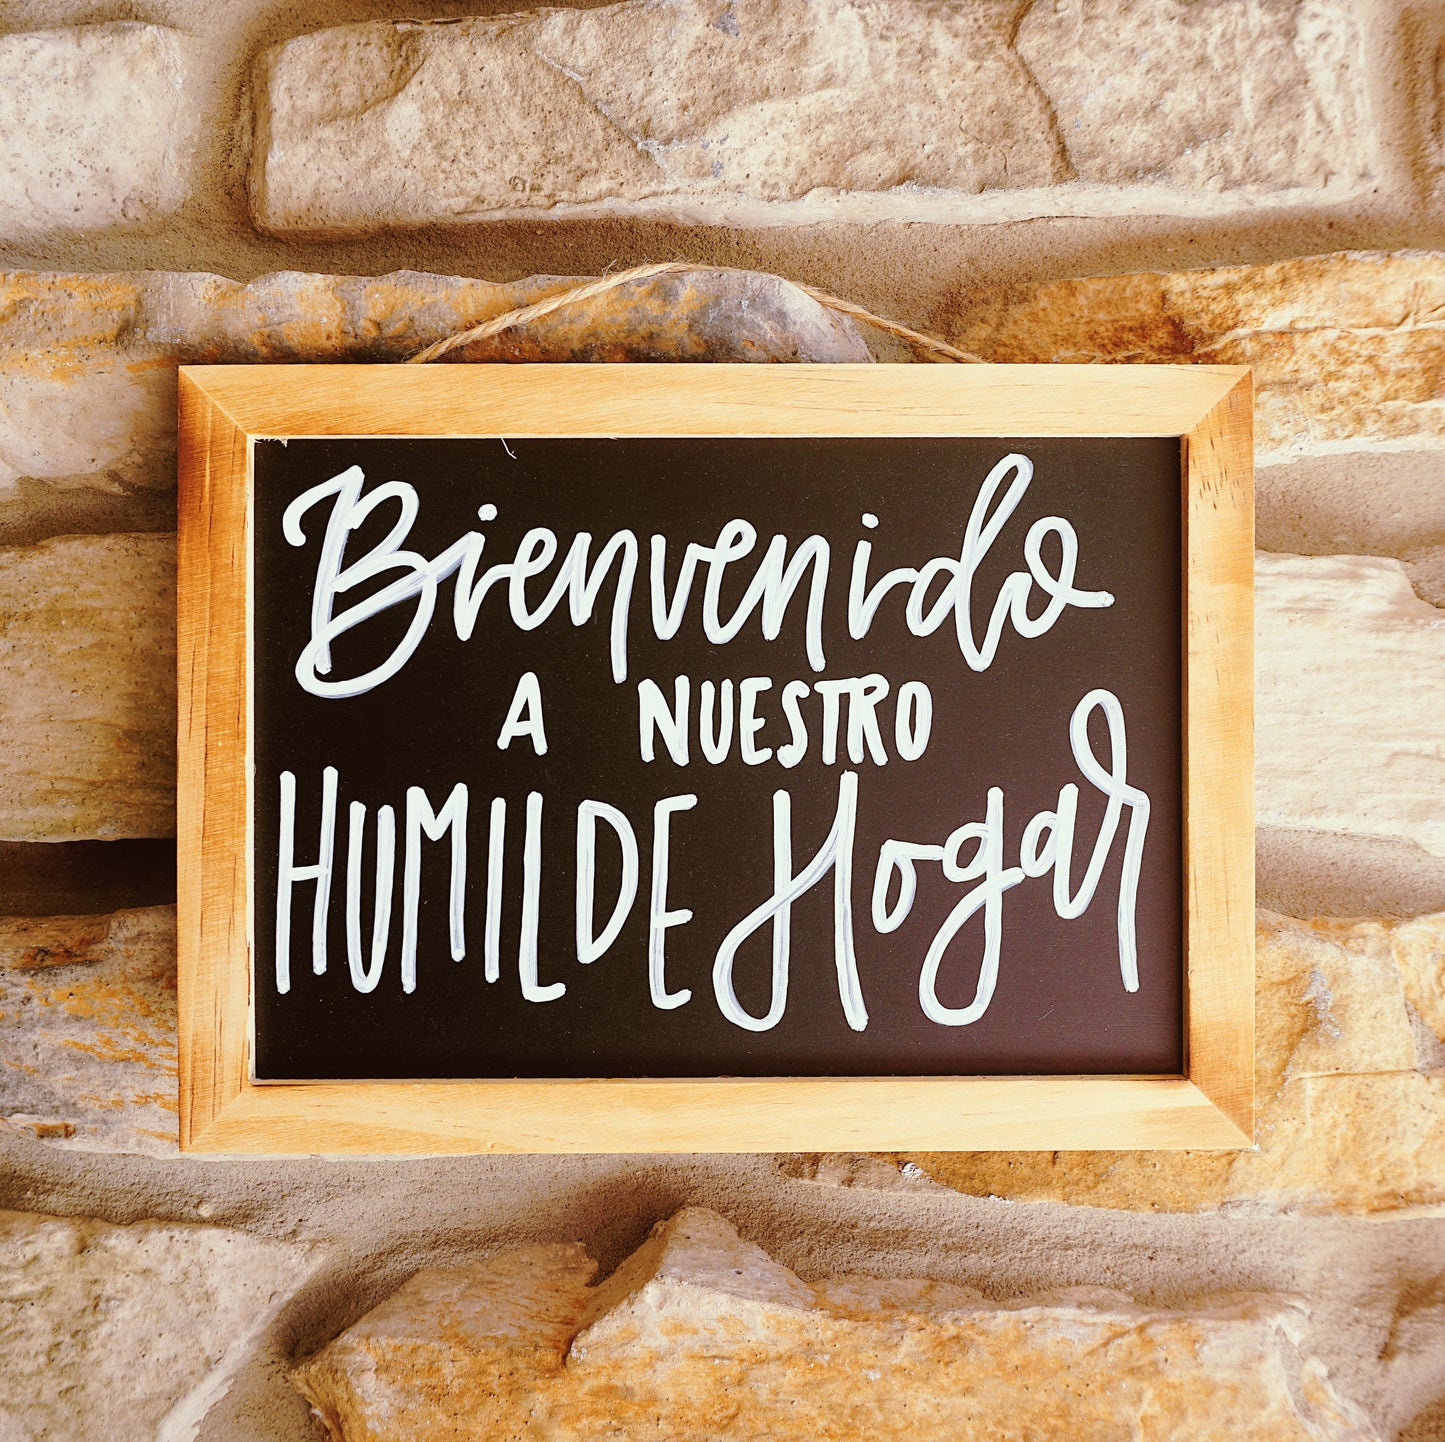 Bienvenido
A NUESTRO
HUMILDE Hogar